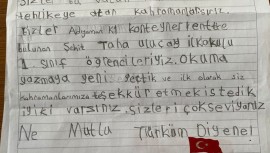 tehlikeye atan kahramanlarsınız.
Bizler Adıyaman K1 konteynerkentte
bulunan Şehit Taha Uluçay ilkokulu
1. sınıf öğrencileriyiz. Okuma
yazmaya yeni geçtik ve ilk olarak siz
kahramanlarımıza teşekkür etmek istedik
iyiki varsınız sizleri çok seviyoruz
Ne Mutlu Türküm Diyene!